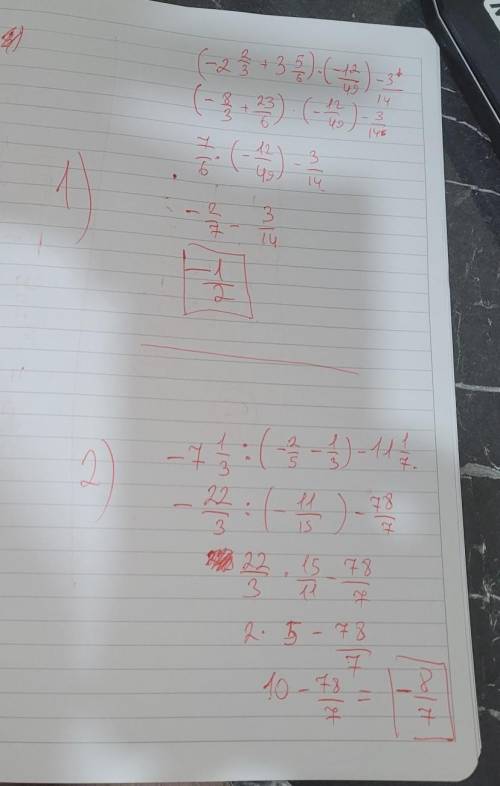 1)
(-2 2/3 + 3 5/6) · (-12/49) - 3/14
(-8/3 + 23/6) · (-12/49) - 3/14
7/6 · (-12/49) - 3/14
-2/7 - 3/14
-1/2
2)
-7 1/3 : (-2/5 - 1/3) - 11 1/7.
-22/3 : (-11/15) - 78/7
22/3 · 15/11 - 78/7
2 · 5 - 78/7
10 - 78/7 = -8/7